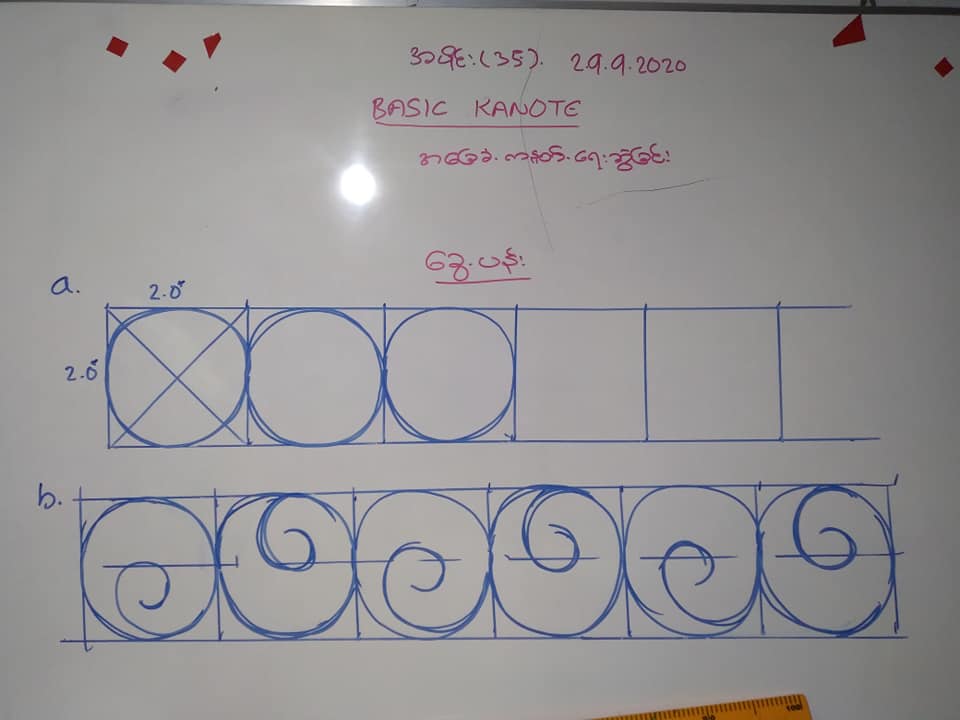 အပိုင်း(၃၅). 29.9.2020
BASIC KANOTE
အခြေခံ.ကနုတ်.ရေးဆွဲခြင်း
ခွေ.ပန်း
a.
2.0"
2.0"
b.
100